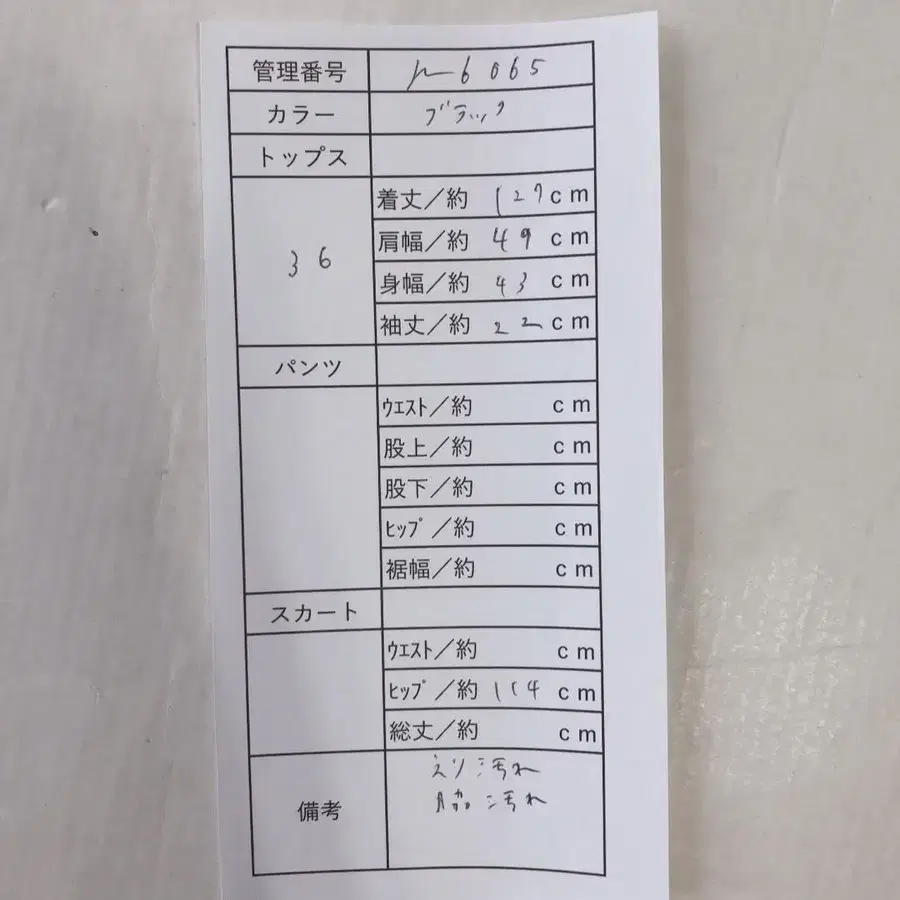 管理番号 6065
カラー ブラック
トップス
36
着丈／約 127cm
肩幅／約 49 cm
身幅／約 43 cm
袖丈／約 22cm
パンツ
ｳｴｽﾄ／約 cm
股上／約 cm
股下／約 cm
ﾋｯﾌﾟ／約 cm
裾幅／約 cm
スカート
ｳｴｽﾄ／約 cm
ﾋｯﾌﾟ／約 114 cm
総丈／約 cm
備考
えり汚れ
脇汚れ